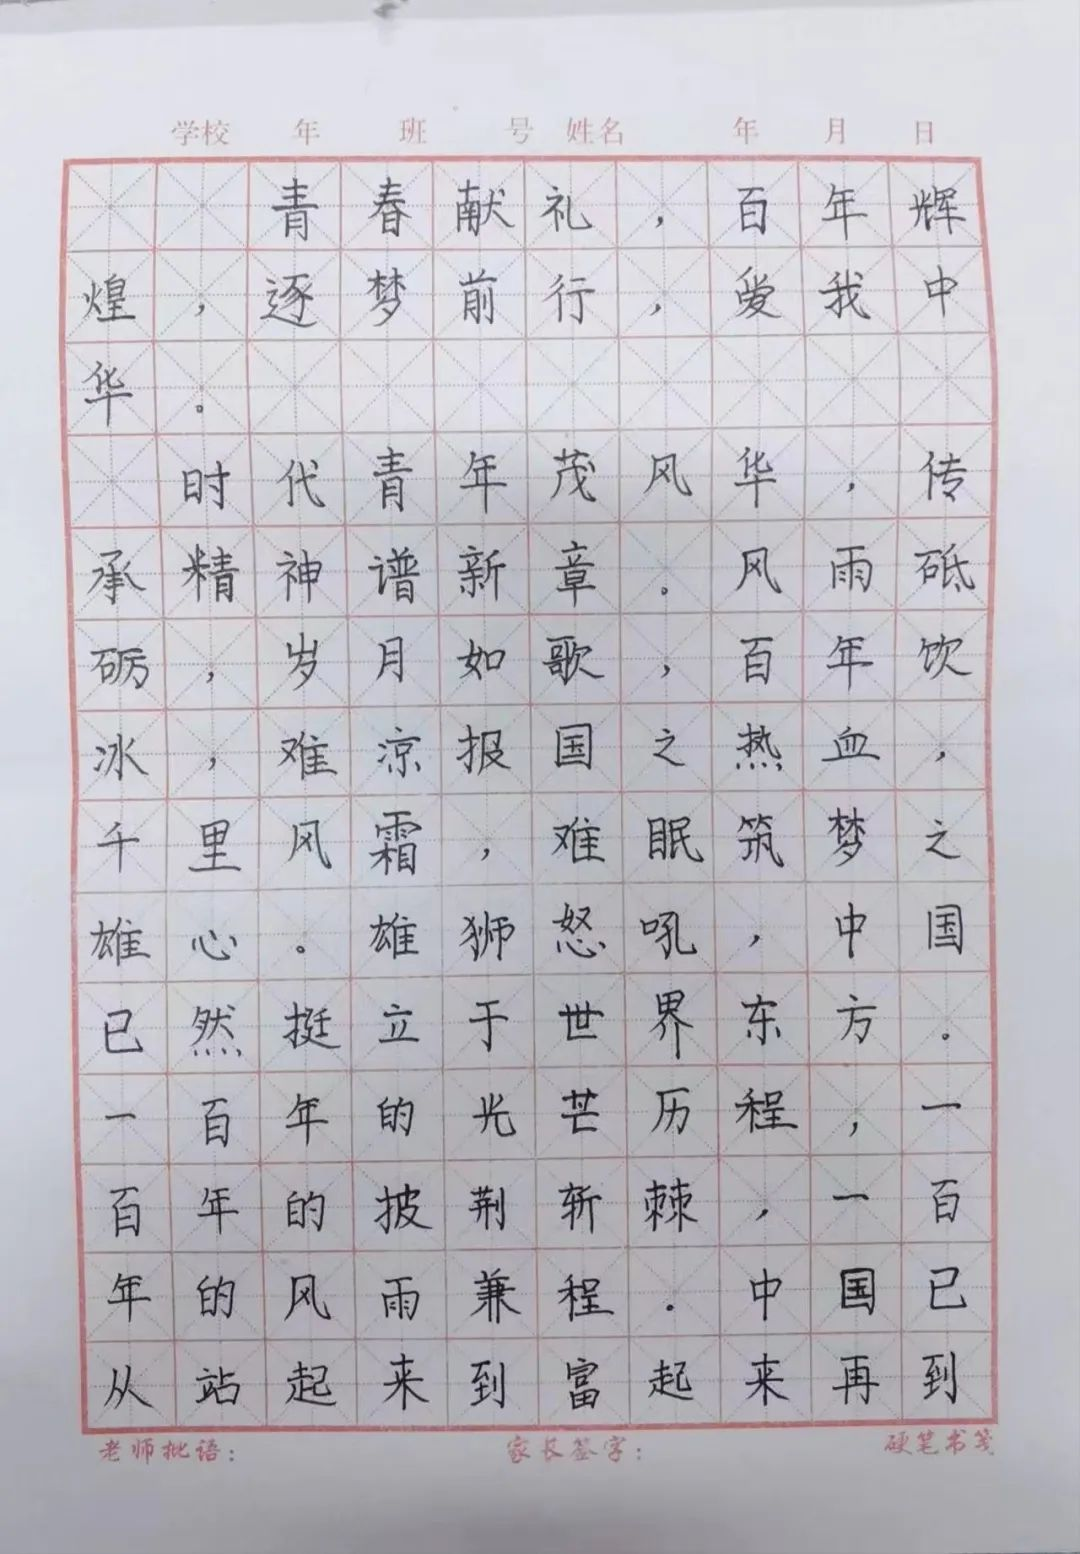 学校 年 班 号 姓名 年 月 日
青春献礼，百年辉
煌，逐梦前行，爱我中
华。
时代青年茂风华，传
承精神谱新章。风雨砥
砺，岁月如歌，百年饮
冰，难凉报国之热血，
千里风霜，难眠筑梦之
雄心。雄狮怒吼，中国
已然挺立于世界东方。
一百年的光芒历程，一
百年的披荆斩棘，一百
年的风雨兼程。中国已
从站起来到富起来再到
老师批语： 家长签字： 硬笔书笺